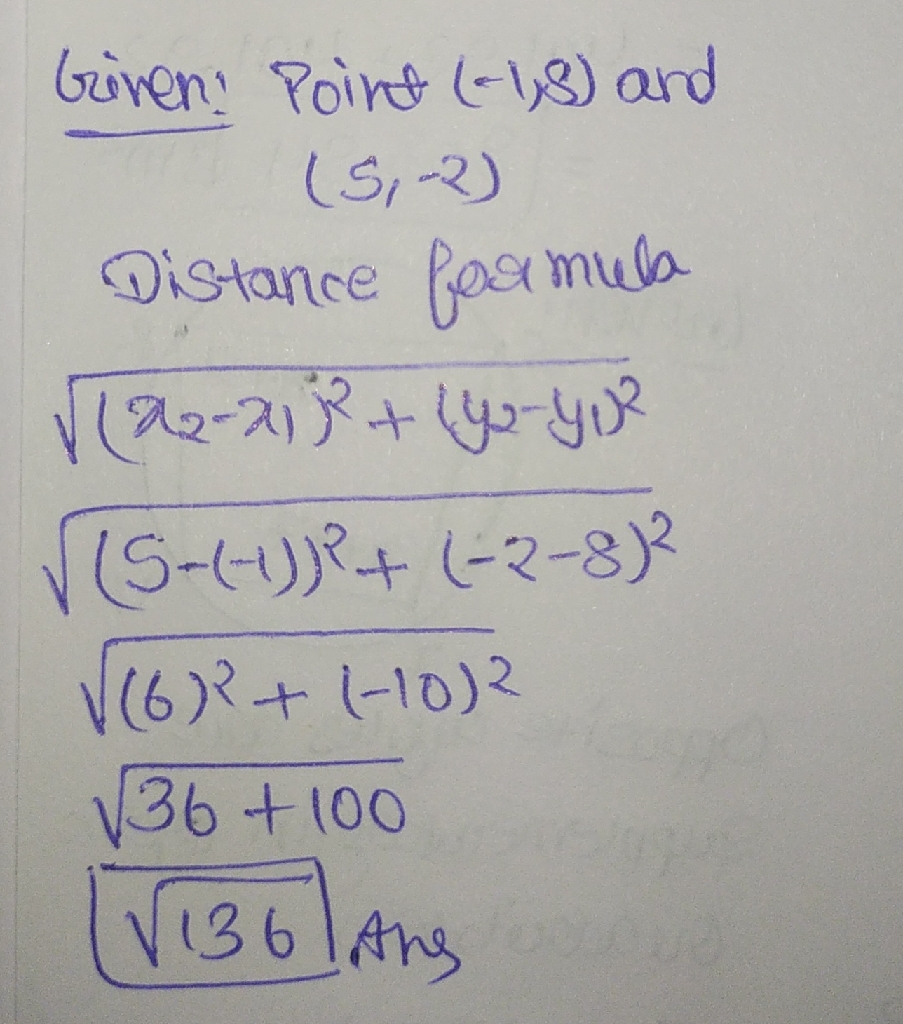 Given: Point (-1,8) and
(5,-2)
Distance formula
√(x₂-x₁)² + (y₂-y₁)²
√(5-(-1))² + (-2-8)²
√(6)² + (-10)²
√36 + 100
√136 Ans